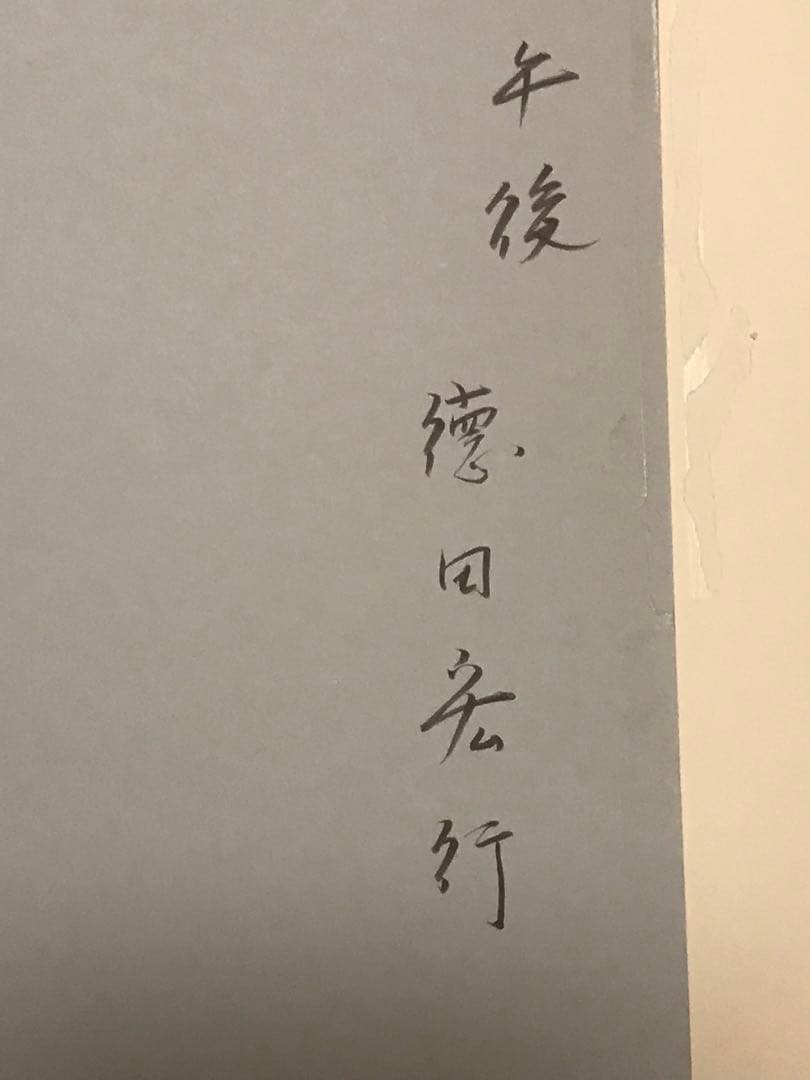 午後
徳田宏行